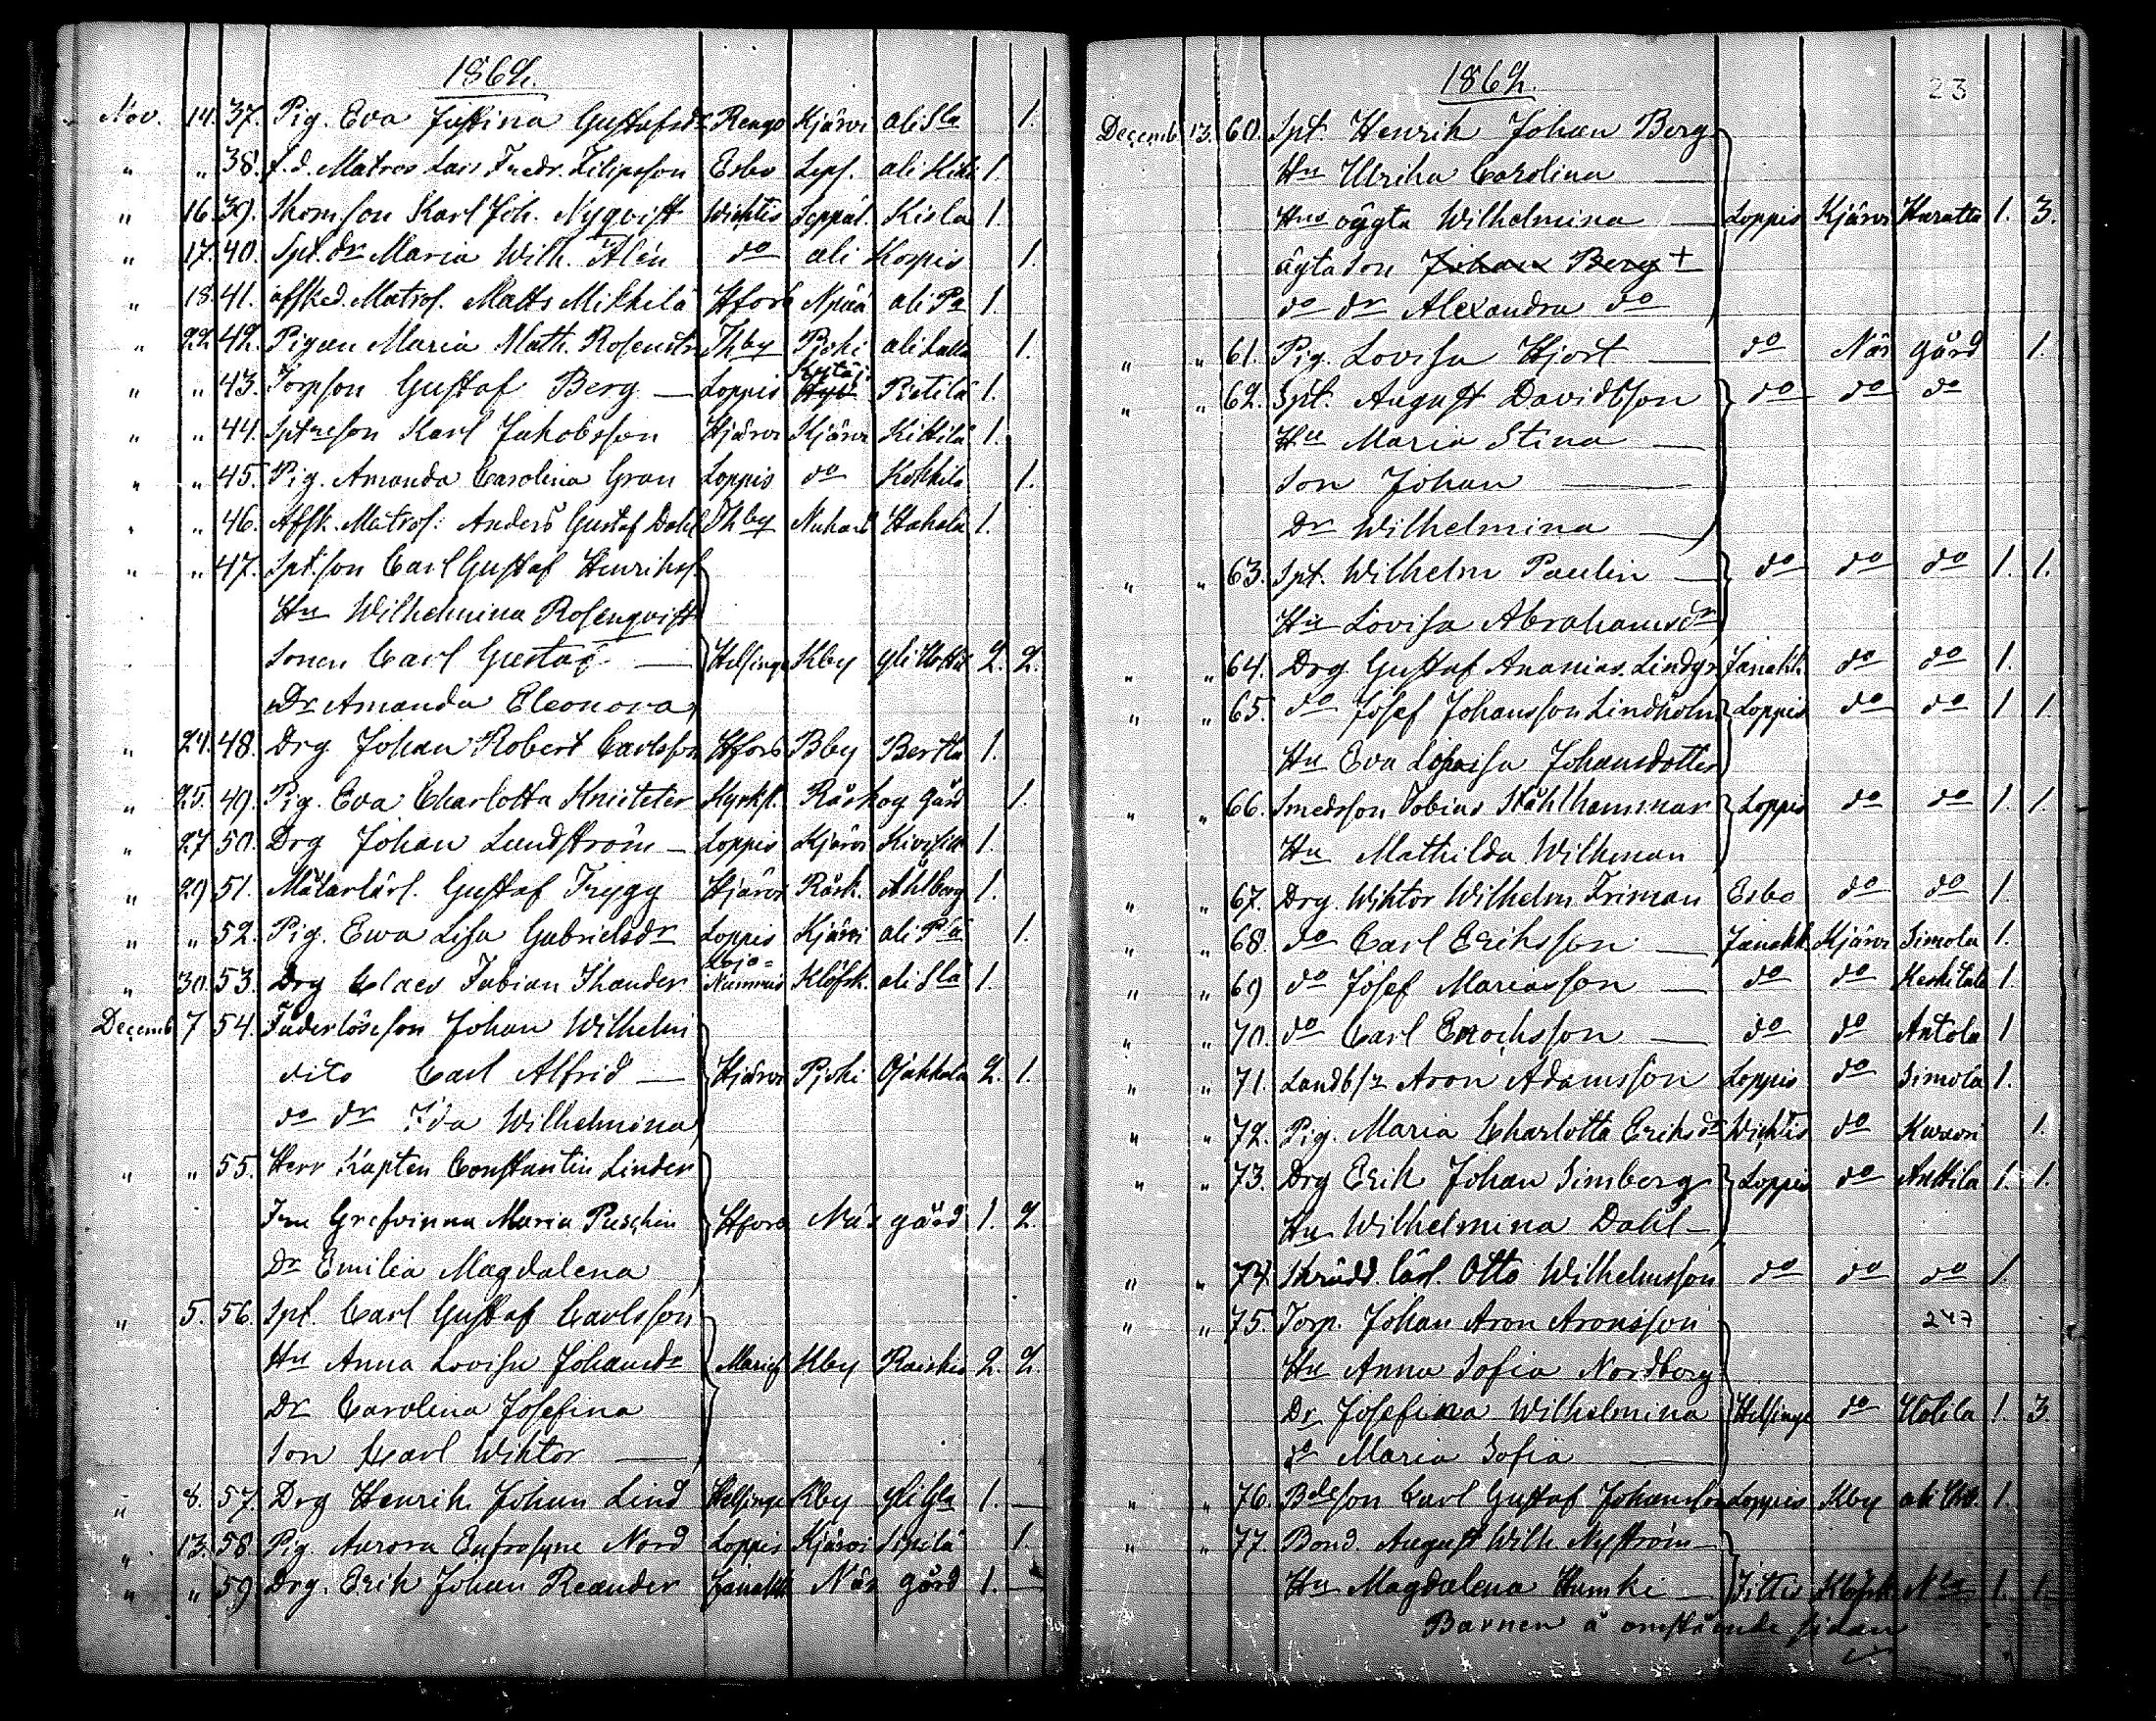 1862.
Nov. 14. 37. Pig. Eva Justina Gustafsdr Rengo Kjärvi ali Sla 1.
" " 38. f.d. Matros Lars Fredr. Filipsson Esbo Leps. ali Kik 1.
" 16. 39. Thomson Karl Joh. Nyqvist Wichtis Seppäl. Kisla 1.
" 17. 40. Spt. dr Maria Wilh. Alén do ali Korpis 1.
" 18. 41. afsked. Matros. Matts Mikkilä Hfors Npää ali Pa 1.
" 22. 42. Pigan Maria Math. Rosenstr Thby Pjoki ali Lalla 1.
" " 43. Torpson Gustaf Berg — Loppis Kytäj Retilä 1.
" " 44. Sptneson Karl Jakobsson Hjärvi Kjärvi Kittilä 1.
" " 45. Pig. Amanda Carolina Gran Loppis do Kokkila 1.
" " 46. Afsk. Matros. Anders Gustaf Dahl Thby Nuhari Hakala 1.
" " 47. Spt.son Carl Gustaf Henrikss.
Hu Wilhelmina Rosenqvist
Sonen Carl Gustaf — Helsinge Kby yli 2. 2.
Dr Amanda Eleonora
" 24. 48. Drg Johan Robert Carlsson Hfors Bby Bertla 1.
" 25. 49. Pig. Eva Charlotta Knicter Kyrksl. Röskog Gård 1.
" 27 50. Drg Johan Lundström — Loppis Kjärvi 1.
" 29 51. Målarlärl. Gustaf Trygg Hjärvi Rösk. Ahlberg 1.
" " 52. Pig. Ewa Lisa Gabrielsdr Loppis Kjärvi ali Pä 1.
" 30. 53. Drg Claes Fabian Thander Lojo= Nummis Klöfsk. ali Sla 1.
Decemb 7 54. Faderlöseson Johan Wilhelm
dito Carl Alfrid — Hjärvi Pjoki Ojakkala 2. 1.
do dr Ida Wilhelmina
" " 55. Herr Kapten Constantin Linder
Fru Grefvinna Maria Puschin Hfors Näs gård 1. 2.
Dr Emilia Magdalena
" 5. 56. Spt. Carl Gustaf Carlsson
Hu Anna Lovisa Johansdr Marief Kby Raiskio 2. 2.
Dr Carolina Josefina
Son Karl Wiktor —
" 8. 57. Drg Henrik Johan Lind Helsinge Kby yli Yla 1. —
" 13. 58. Pig. Aurora Eufrosyne Nord Loppis Kjärvi Sipilä 1.
" " 59. Drg. Erik Johan Reander Janakk Näs gård 1. —
1862.
23
Decemb. 13. 60. Spt. Henrik Johan Berg
Hu Ulrika Carolina —
Hus oägta Wilhelmina — Loppis Kjärvi Haratta 1. 3.
ägta Son Johan Berg +
do dr Alexandra do
" " 61. Pig. Lovisa Hjort — do Näs gård 1.
" " 62. Spt. August Davidsson do do do
Hu Maria Stina —
Son Johan —
Dr Wilhelmina —
" " 63. Spt. Wilhelm Paulin — do do do 1. 1.
Hu Lovisa Abrahamsdr
" " 64. Drg Gustaf Ananias. Lindgr Janakk. do do 1.
" " 65. do Josef Johansson Lindholm Loppis do do 1 1
Hu Eva Lovisa Johansdotter
" " 66. Smedsson Tobias Stählhammar Loppis do do 1. 1.
Hu Mathilda Wilkman
" " 67. Drg. Wiktor Wilhelm Friman Esbo do do 1.
" " 68. do Carl Eriksson — Janakk Kjärvi Simola 1.
" " 69 do Josef Mariasson — do do Keskitalo 1
" " 70. do Carl Enochsson — do do Antola 1
" " 71. Landb/r Aron Adamsson Loppis do Simola 1.
" " 72. Pig. Maria Charlotta Eriksdr Wichtis do Kuvari 1.
" " 73. Drg Erik Johan Simberg Loppis do Anttila 1. 1.
Hu Wilhelmina Dahl —
" " 74. Skrädd. lärl. Otto Wilhelmsson do do do 1.
" " 75. Torp. Johan Aron Aronsson 247
Hu Anna Sofia Nordberg
Dr Josefina Wilhelmina Helsinge do Uotila 1. 3.
do Maria Sofia —
" " 76. Bdeson Carl Gustaf Johansson Loppis Kby ali 1.
" " 77. Bond. August Wilh. Nyström —
Hu Magdalena Humki — Sittis Klöfsk Nla 1. 1.
Barnen å omstående sidan